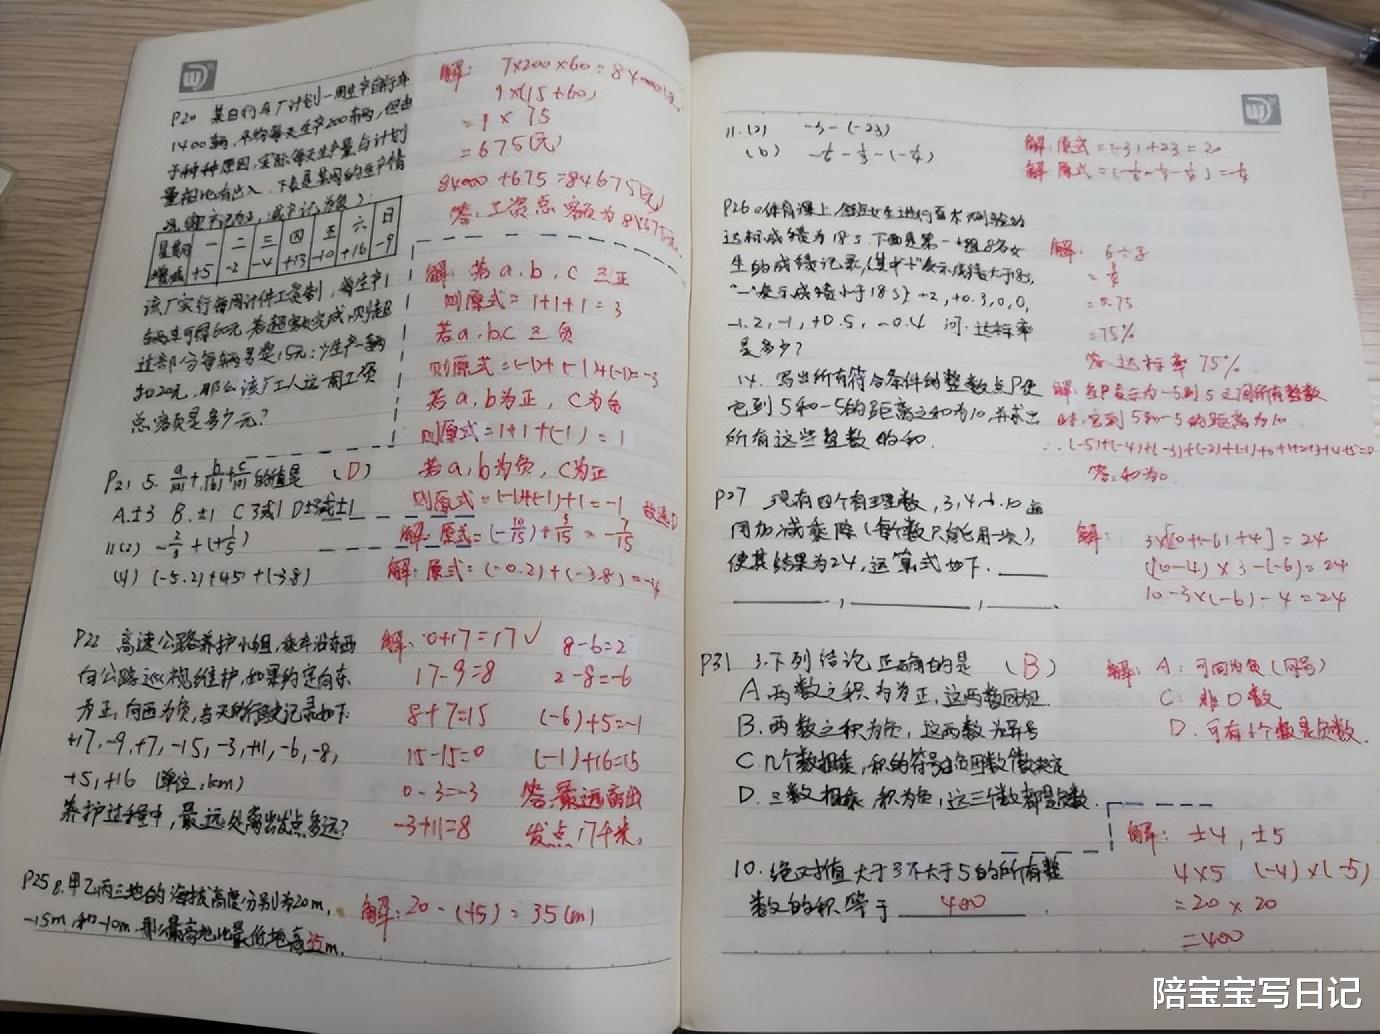 P20 某自行车厂计划一周生产自行车
1400辆,平均每天生产200辆,但由
于种种原因,实际每天生产量与计划
量相比有出入.下表是某周的生产情
况(增产记为正,减产记为负):
星期 一 二 三 四 五 六 日
增减 +5 -2 -4 +13 -10 +16 -9
该厂实行每周计件工资制,每生产1
辆车可得60元,若超额完成,则超
过部分每辆另奖15元;少生产一辆
扣20元,那么该厂工人这一周工资
总额是多少元?
解: 7×200×60=84000(元)
9×(15+60)
=9×75
=675(元)
84000+675=84675(元)
答:工资总额为84675元.
P21 5. 的值是 (D)
A.±3 B.±1 C 3或1 D±3或±1
解:若a,b,c三正
则原式=1+1+1=3
若a,b,c三负
则原式=(-1)+(-1)+(-1)=-3
若a,b为正,c为负
则原式=1+1+(-1)=1
若a,b为负,c为正
则原式=(-1)+(-1)+1=-1 故选D
11(2) -2/3+(+1/5)
解:原式=(-10/15)+3/15=-7/15
(4) (-5.2)+4.5+(-3.8)
解:原式=(-0.2)+(-3.8)=-4
P22 高速公路养护小组,乘车沿东西
向公路巡视维护,如果约定向东
为正,向西为负,当天的行驶记录如下:
+17,-9,+7,-15,-3,+11,-6,-8,
+5,+16 (单位:km)
养护过程中,最远处离出发点多远?
解: 0+17=17√ 8-6=2
17-9=8 2-8=-6
8+7=15 (-6)+5=-1
15-15=0 (-1)+16=15
0-3=-3 答:最远离出
-3+11=8 发点17千米.
P25 8.甲乙丙三地的海拔高度分别为20m,
-15m,和-10m.那么最高地比最低地高35m.
解:20-(-15)=35(m)
11.(2) -3-(-23)
解:原式=(-3)+23=20
(6)
解:原式=
P26 体育课上,全班女生进行百米测验的
达标成绩为18s.下面是第一组8名女
生的成绩记录,(其中"+"表示成绩大于18s,
"-"表示成绩小于18s): +2,+0.3,0,0,
-1.2,-1,+0.5,-0.4 问:达标率
是多少?
解: 6÷8
=0.75
=75%
答:达标率75%
14. 写出所有符合条件的整数点P,使
它到5和-5的距离之和为10,并求出
所有这些整数的和.
解:当P表示为-5到5之间所有整数
时,它到5和-5的距离为10
∴(-5)+(-4)+(-3)+(-2)+(-1)+0+1+2+3+4+5=0
答:和为0.
P27 现有四个有理数,3,4,-6,10运
用加减乘除(每个数只能用一次),
使其结果为24,运算式如下.
解: 3×[10+(-6)+4]=24
(10-4)×3-(-6)=24
10-3×(-6)-4=24
P31 3.下列结论正确的是 (B)
A.两数之积为正,这两数同正.
B.两数之积为负,这两数为异号
C.几个数相乘,积的符号由负因数个数决定
D.三数相乘,积为负,这三个数都是负数.
解: A:可同为负(同号)
C:非0数
D.可有1个数是负数.
10.绝对值大于3不大于5的所有整
数的积等于 400 .
解: ±4,±5
4×5 (-4)×(-5)
=20×20
=400
陪宝宝写日记